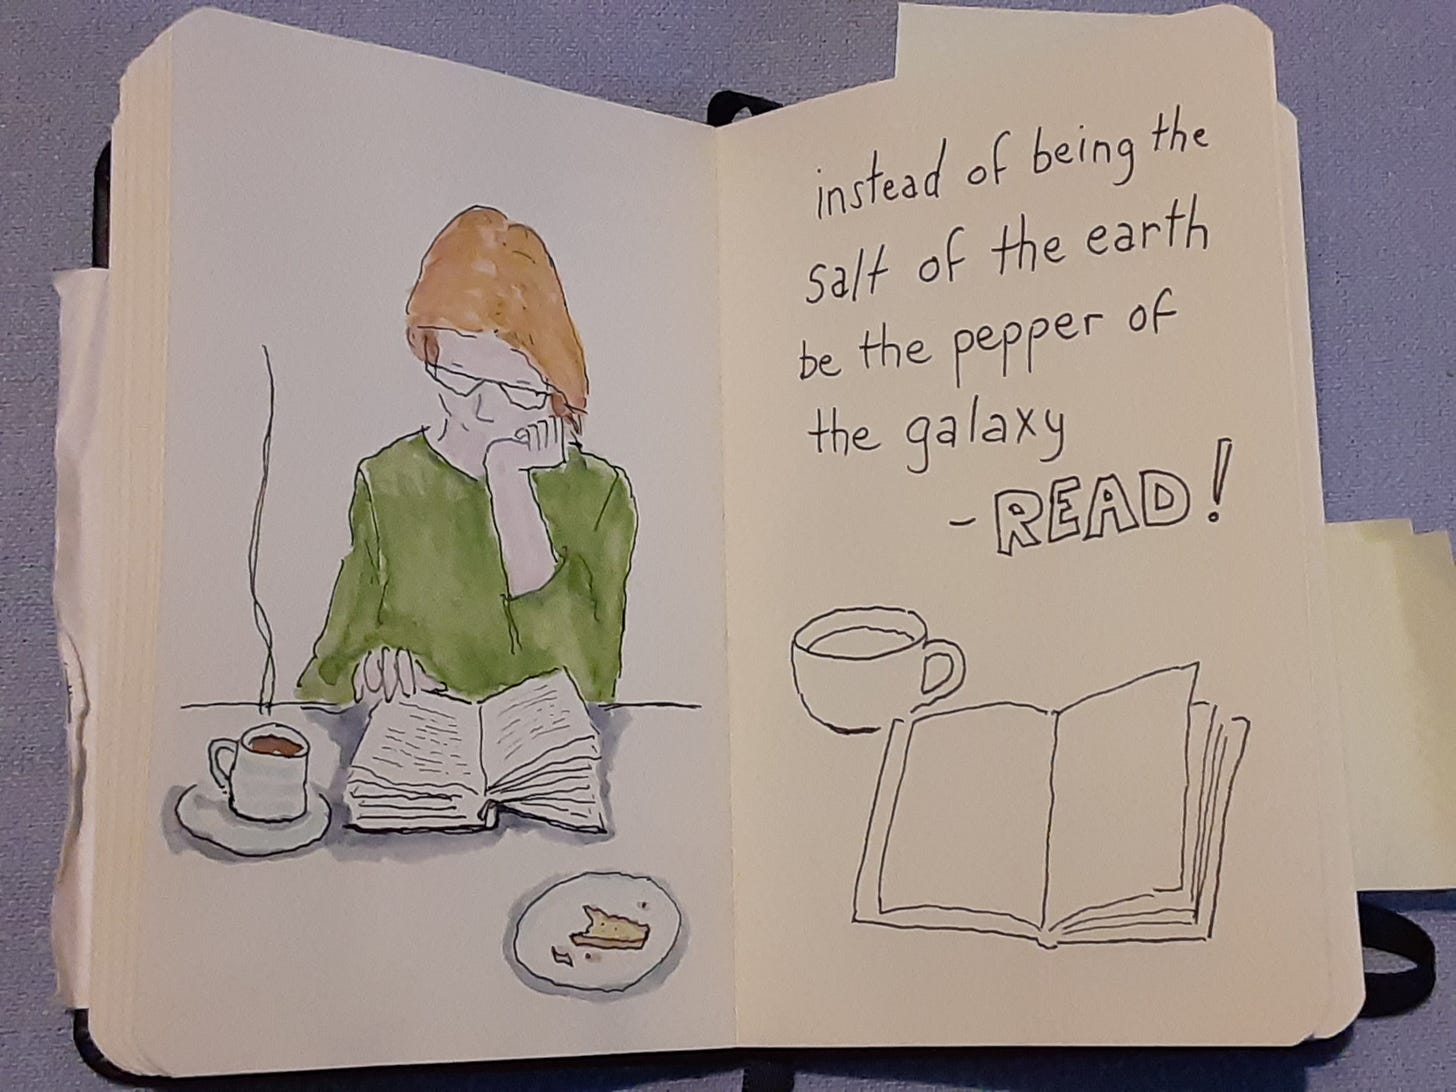 instead of being the
salt of the earth
be the pepper of
the galaxy
- READ!